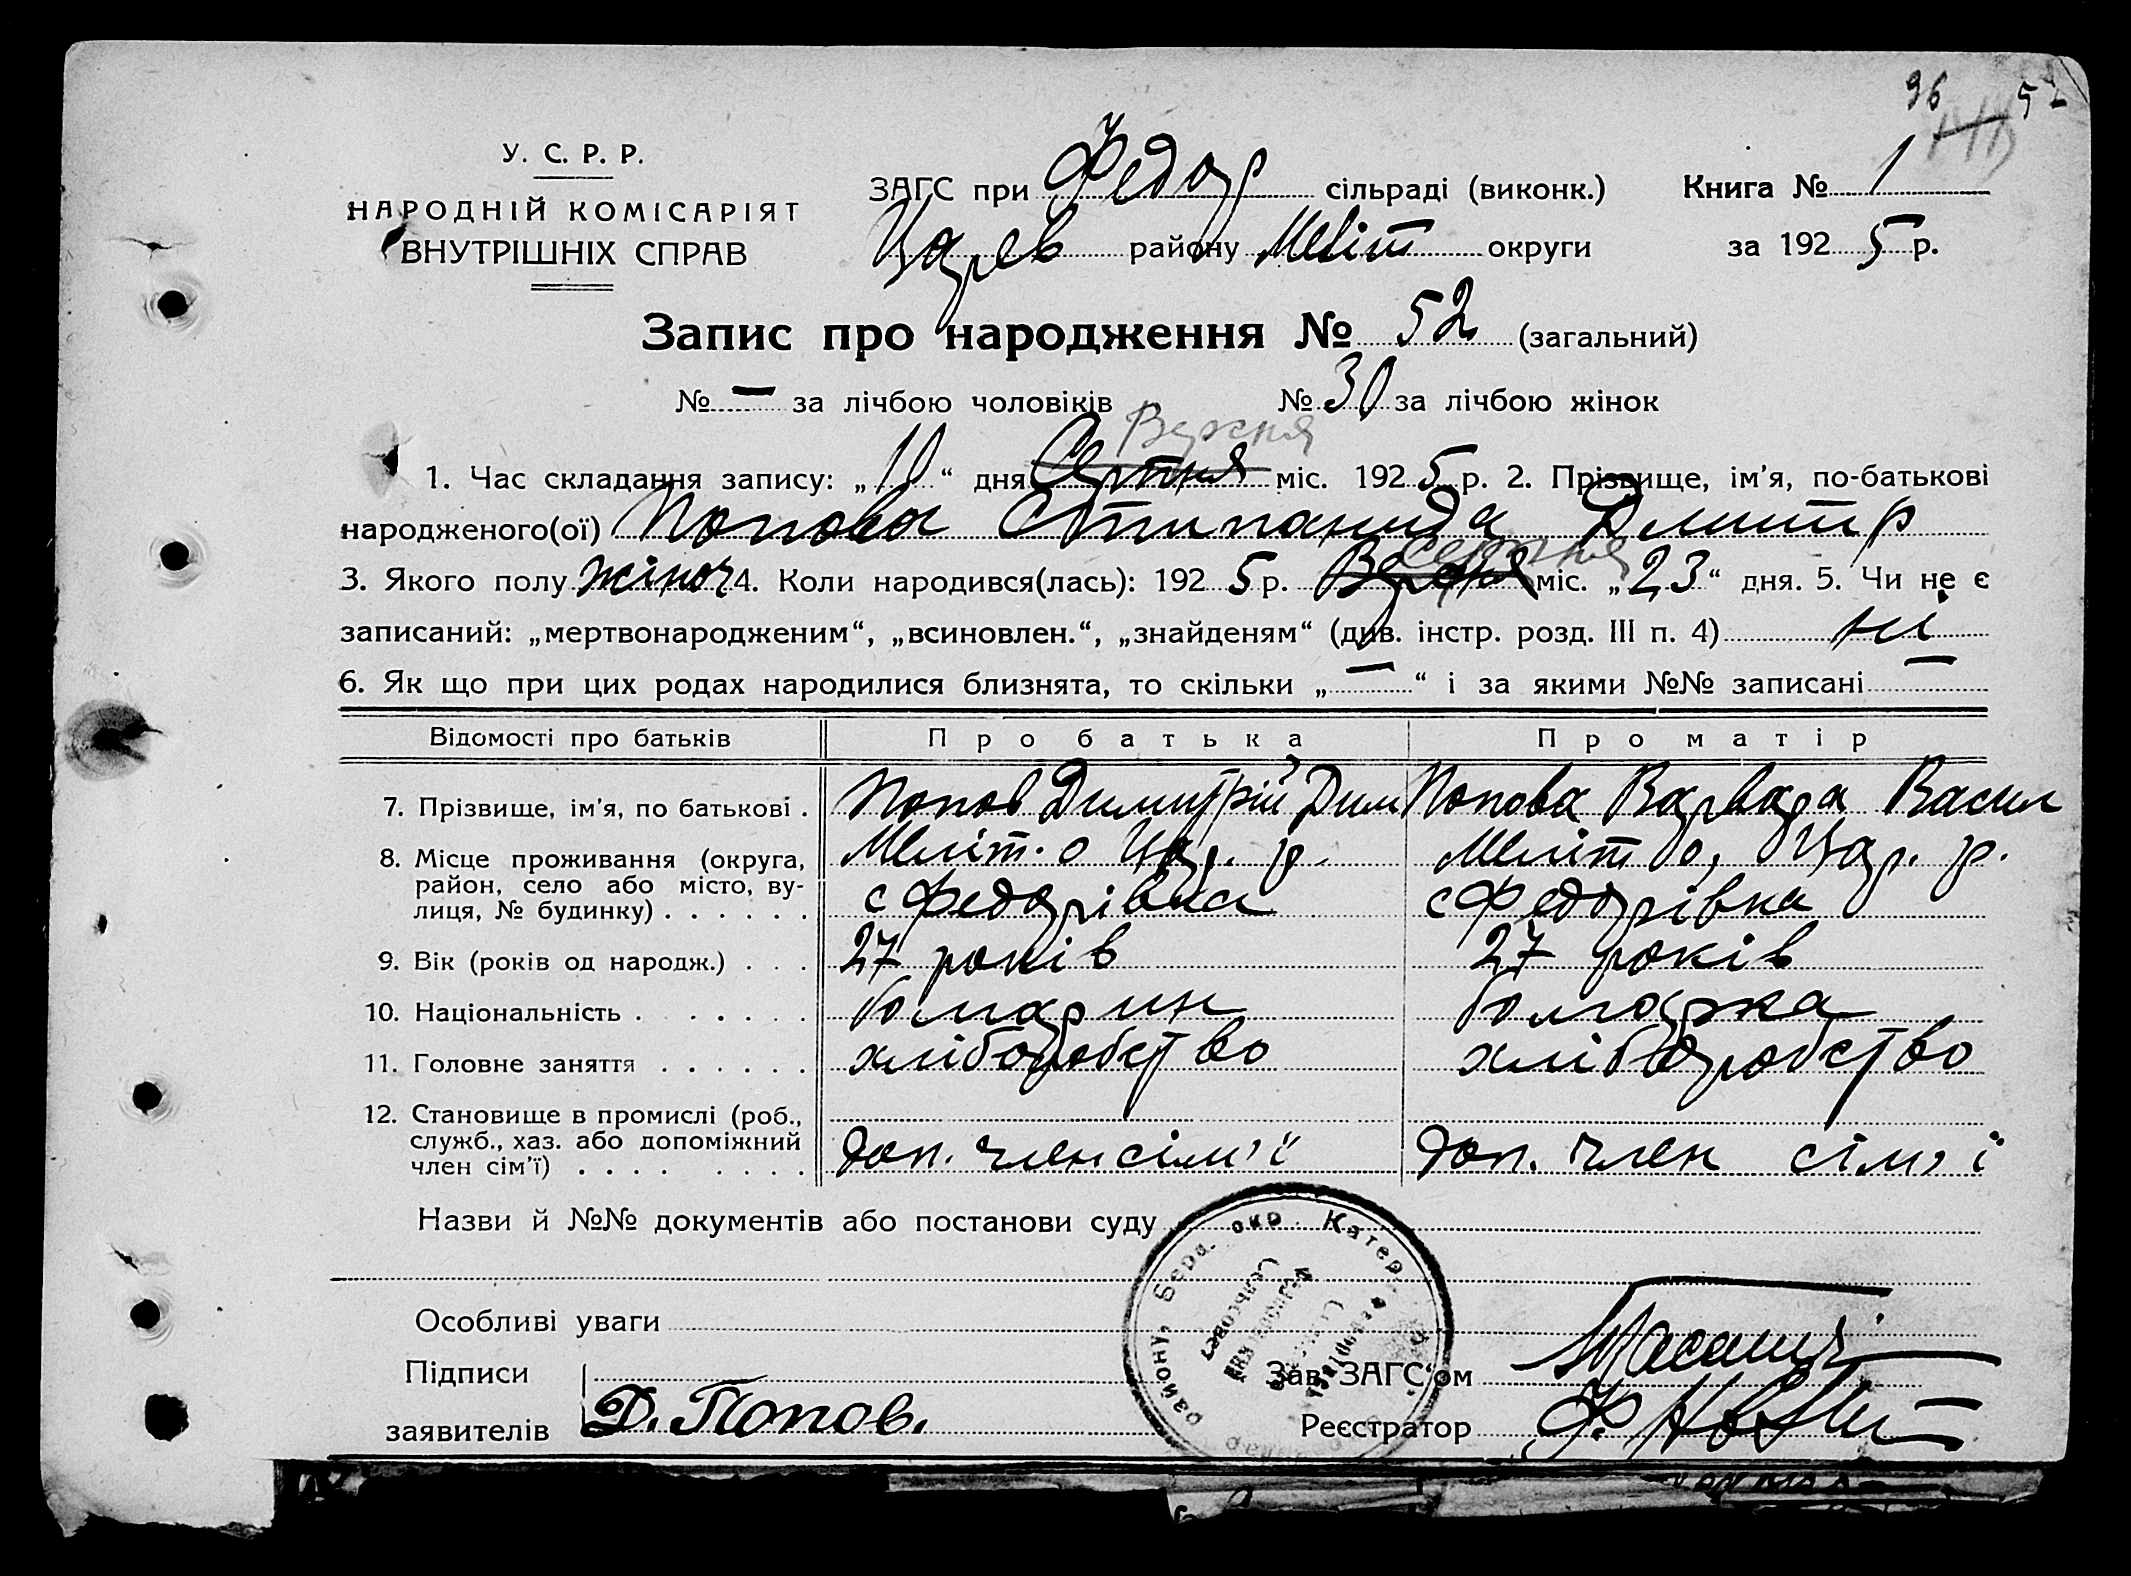 96 52
У. С. Р. Р.
НАРОДНІЙ КОМІСАРІЯТ
ВНУТРІШНІХ СПРАВ
ЗАГС при Федор сільраді (виконк.) Книга № 1
Царев району Меліт округи за 1925 р.
Запис про народження № 52 (загальний)
№ – за лічбою чоловіків № 30 за лічбою жінок
Вересня
1. Час складання запису: „10“ дня Серпня міс. 1925 р. 2. Прізвище, ім'я, по-батькові
народженого(ої) Попова Стипанида Дмитр
серпня
3. Якого полу жіноч 4. Коли народився(лась): 1925 р. Вересня міс. „23“ дня. 5. Чи не є
записаний: „мертвонародженим“, „всиновлен.“, „знайденям“ (див. інстр. розд. III п. 4) ні
6. Як що при цих родах народилися близнята, то скільки „–“ і за якими №№ записані –
Відомості про батьків Про батька Про матір
7. Прізвище, ім'я, по батькові . Попов Димитрій Дим Попова Варвара Васил
8. Місце проживання (округа, Меліт. о Цар. р. Меліт о, Цар. р.
район, село або місто, ву-
лиця, № будинку) . . . . . . с Федорівка с Федорівка
9. Вік (років од народж.) . . . 27 років 27 років
10. Національність . . . . . . . болгарин болгарка
11. Головне заняття . . . . . . хліборобство хліборобство
12. Становище в промислі (роб.,
служб., хаз. або допоміжний
член сім'ї) . . . . . . . . доп. член сім'ї доп. член сім'ї
Назви й №№ документів або постанови суду
Бера. окр. Катер.
району,
Особливі уваги
Підписи Зав. ЗАГС'ом
заявителів Д. Попов. Реєстратор